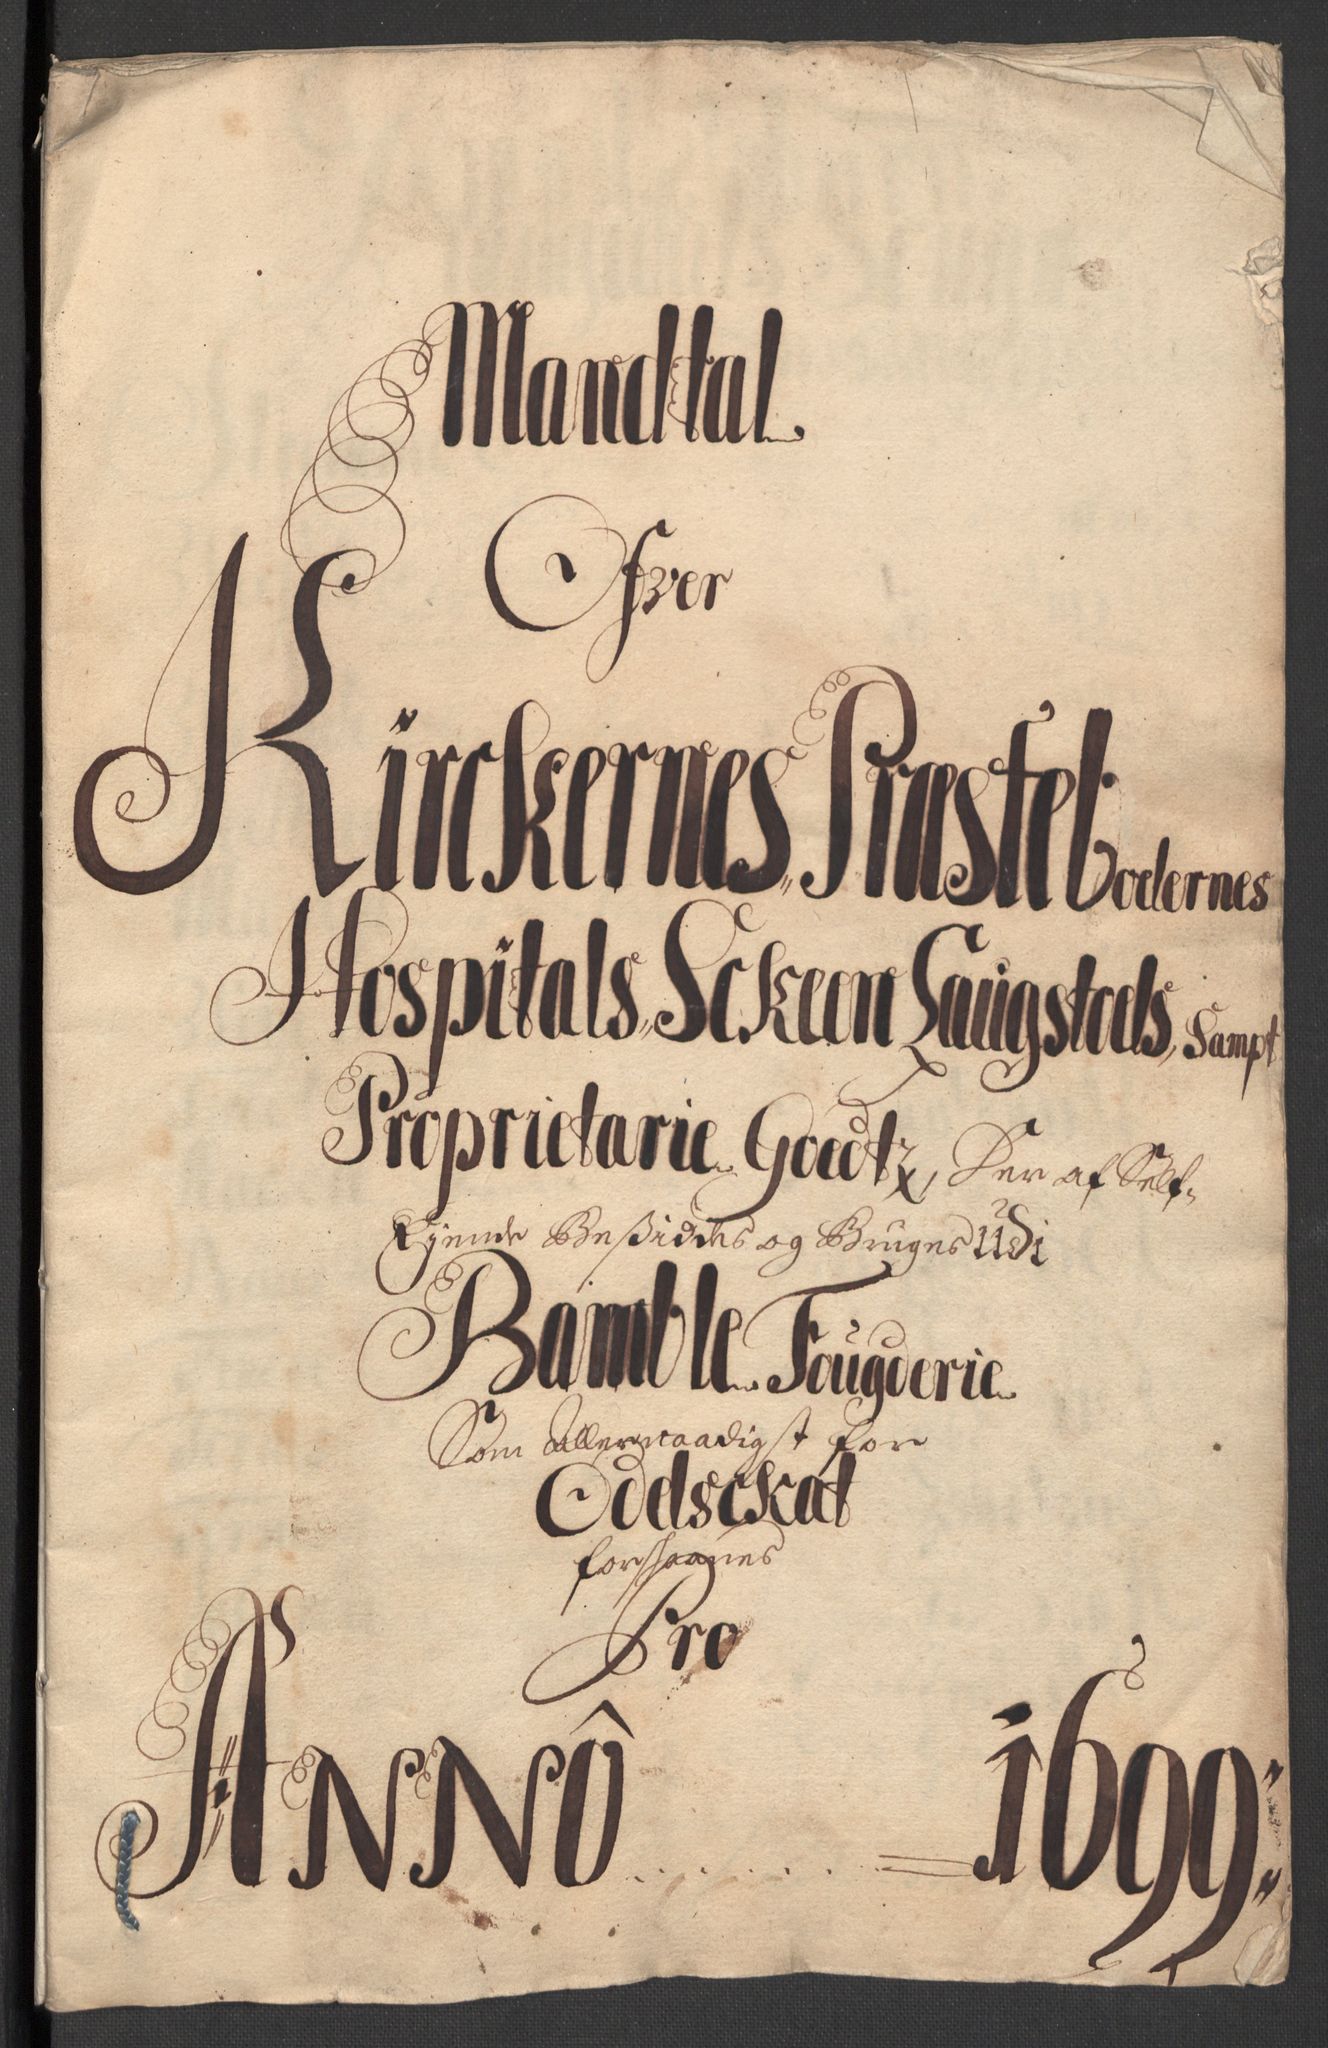 Mandtal
Ofver
Kirckernes, Præstebodernes
Hospitals, Sckeen Laugstoels, Sampt
Proprietarie Goedtz, Der af Self-
Eyende Beßiddes og Bruges Udi
Bamble Fougderie
Som allernaadigst for
Odelsckat
forskaanes
Pro
ANNÔ 1699